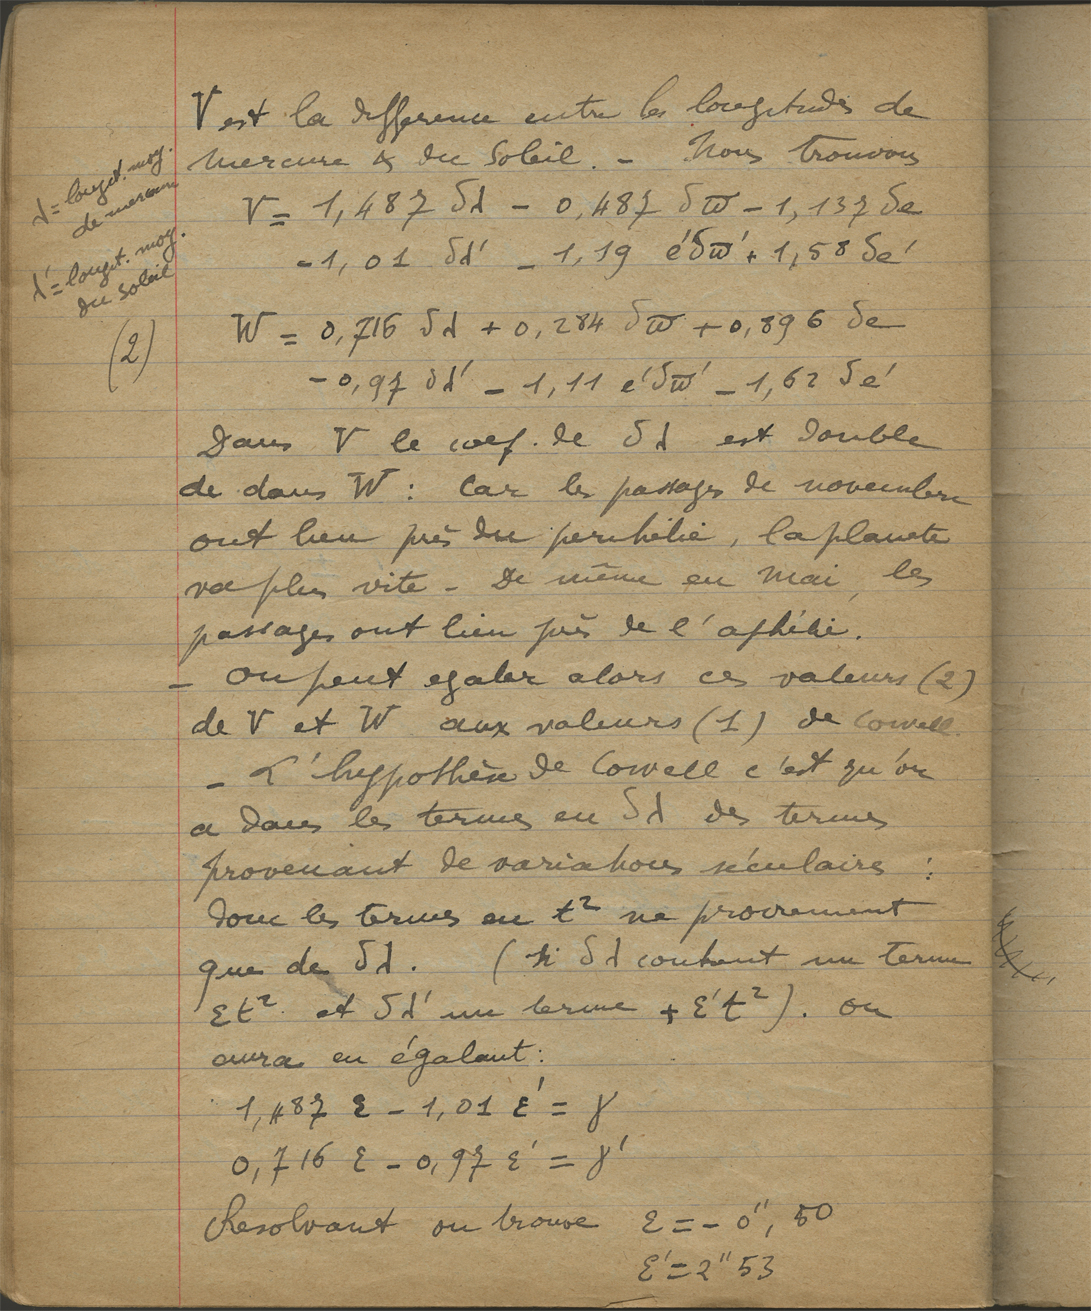 V est la difference entre les longitudes de
mercure & du Soleil. - Nous trouvons
λ = longit. moy.
de mercure
V = 1,487 δλ - 0,487 δϖ - 1,137 δe
- 1,01 δλ' - 1,19 e'δϖ' + 1,58 δe'
λ' = longit. moy.
du Soleil
(2)
W = 0,716 δλ + 0,284 δϖ + 0,896 δe
- 0,97 δλ' - 1,11 e'δϖ' - 1,62 δe'
Dans V le coef. de δλ est double
de dans W : Car les passages de novembre
ont lieu près du perihélie, la planete
va plus vite - De même en Mai, les
passages ont lieu près de l'aphélie.
- On peut egaler alors ces valeurs (2)
de V et W aux valeurs (1) de Cowell.
- L'hypothèse de Cowell c'est qu'on
a dans les termes en δλ des termes
provenant de variations séculaires :
donc les termes en t² ne proviennent
que de δλ. (si δλ contient un terme
εt² et δλ' un terme + ε't²). on
aura en égalant :
1,487 ε - 1,01 ε' = γ
0,716 ε - 0,97 ε' = γ'
Resolvant on trouve ε = - 0", 50
ε' = 2" 53